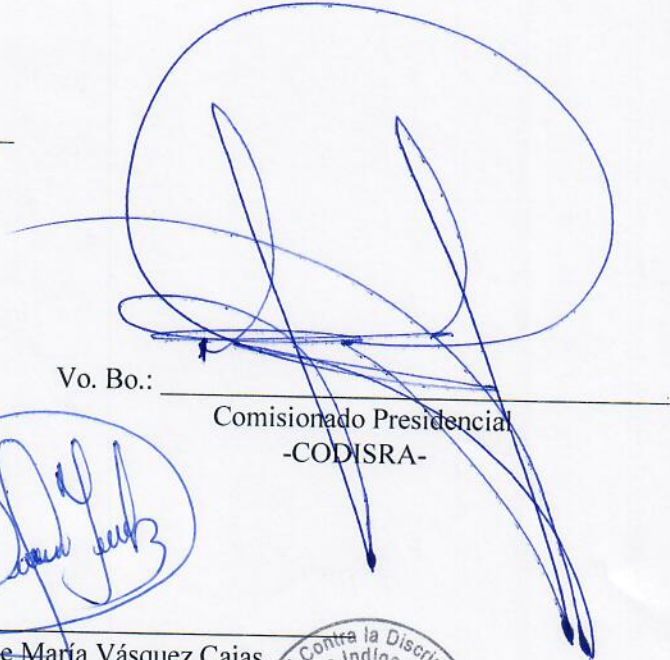 Vo. Bo.:
Comisionado Presidencial
-CODISRA-
e María Vásquez Cajas
Contra la Discri